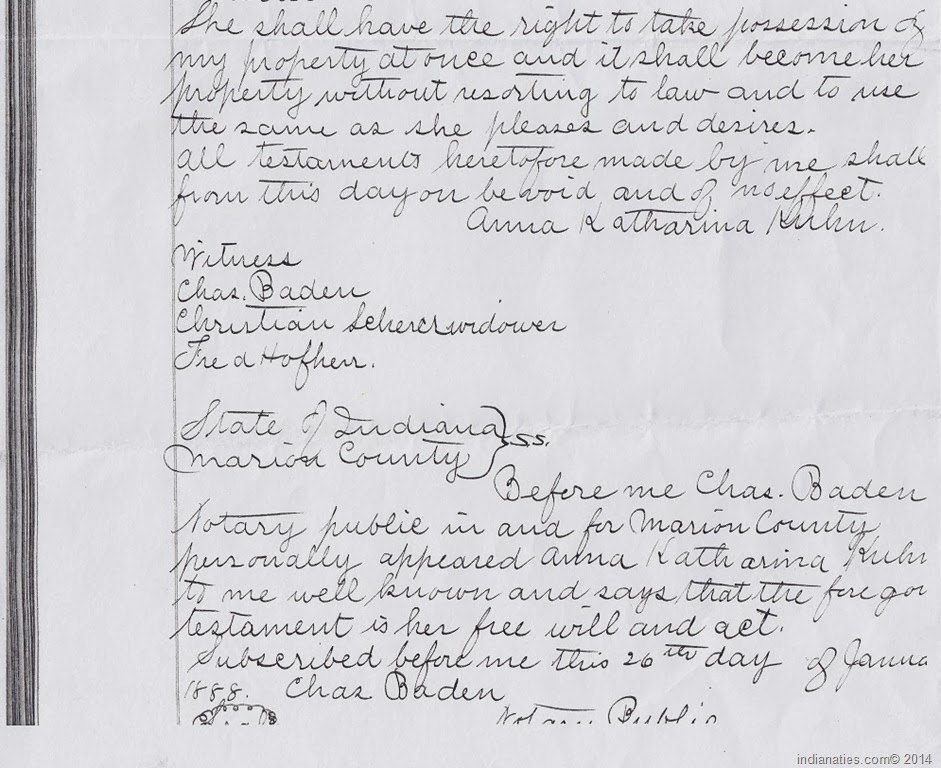 She shall have the right to take possession of
my property at once and it shall become her
property without resorting to law and to use
the same as she pleases and desires.
All testaments heretofore made by me shall
from this day on be void and of no effect.
Anna Katharina Kuhn.
Witness
Chas. Baden
Christian widower
Fred Hofherr.
State of Indiana } ss.
Marion County
Before me Chas. Baden
Notary public in and for Marion County
personally appeared Anna Katharina Kuhn
to me well known and says that the foregoi
testament is her free will and act.
Subscribed before me this 26th day of Janua
1888. Chas Baden
Notary Public
indianaties.com© 2014